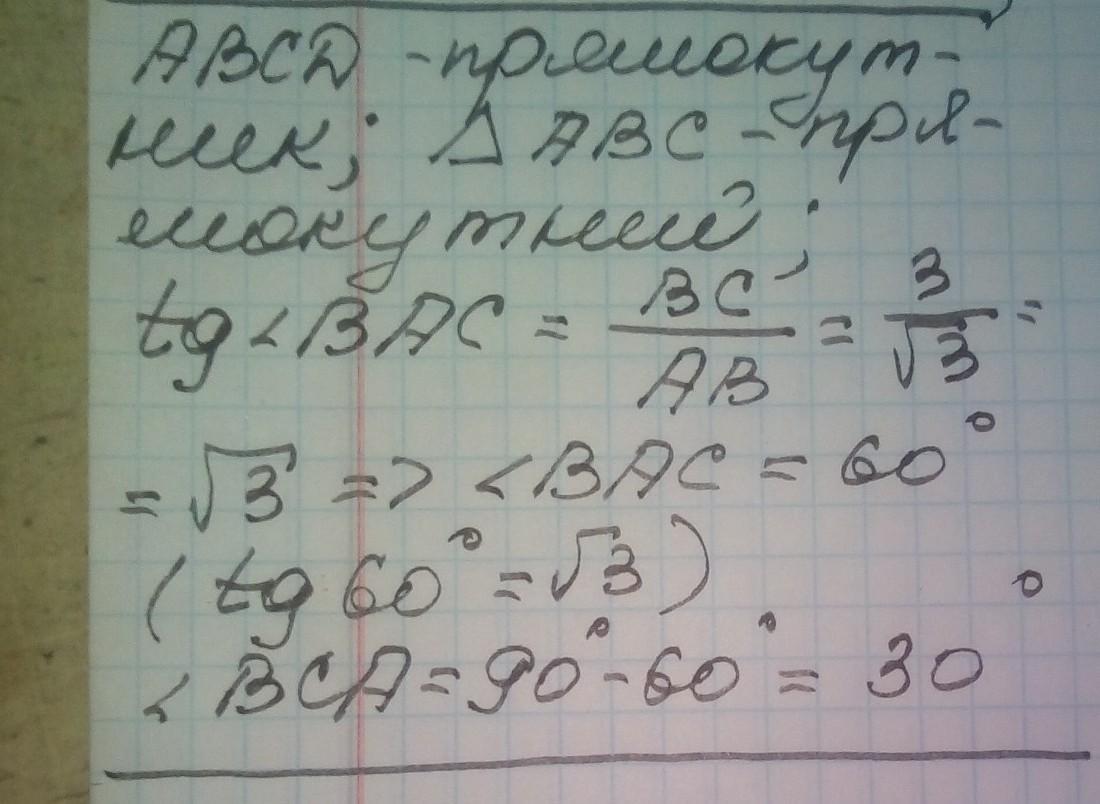 ABCD - прямокут-
ник; △ ABC - пря-
мокутний;
tg < BAC = BC / AB = 3 / √3 =
= √3 => < BAC = 60°
( tg 60° = √3 )
< BCA = 90° - 60° = 30°